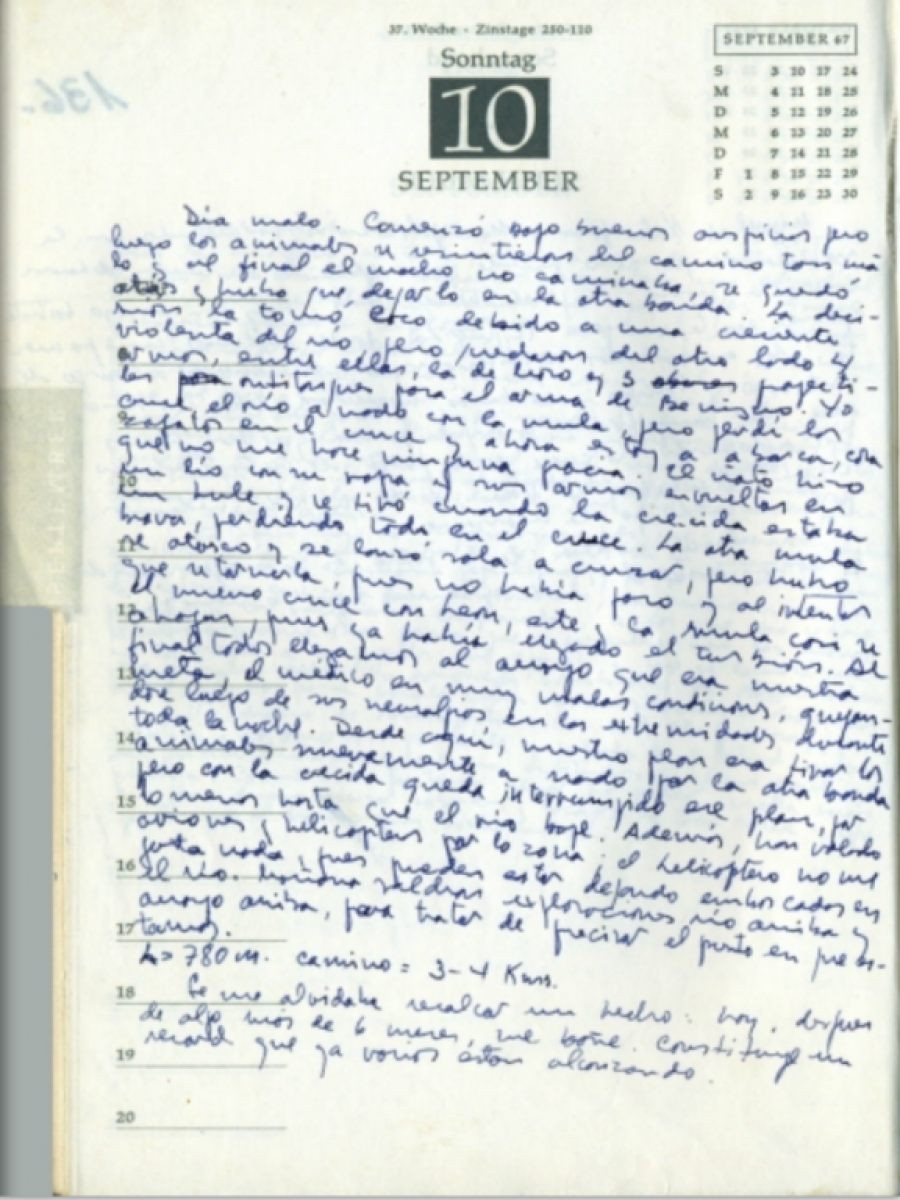 37. Woche - Zinstage 250-110
Sonntag
10
SEPTEMBER
SEPTEMBER 67
S 3 10 17 24
M 4 11 18 25
D 5 12 19 26
M 6 13 20 27
D 7 14 21 28
F 1 8 15 22 29
S 2 9 16 23 30
136.
Día malo. Comenzó bajo buenos auspicios pero
luego los animales se resintieron del camino tan ma
lo y al final el macho no caminaba, se quedó
atrás y hubo que dejarlo en la otra banda. La deci-
sión la tomó Coco debido a una creciente
violenta del río pero quedaron del otro lado 4
armas, entre ellas, la de Moro y 3 proyecti-
les antitanques para el arma de Benigno. Yo
crucé el río a nado con la mula pero perdí los
zapatos en el cruce y ahora estoy a abarca, cosa
que no me hace ninguna gracia. El Ñato hizo
un lío con su ropa y sus armas envueltas en
un hule y se tiró cuando la crecida estaba
brava, perdiendo todo en el cruce. La otra mula
se atascó y se lanzó sola a cruzar, pero hubo
que retornarla, pues no había paso y al intentar
el nuevo cruce con León, este y la mula casi se
ahogan, pues ya había llegado el turbión. Al
final todos llegamos al arroyo que era nuestra
meta, el médico en muy malas condiciones, quejan-
dose luego de sus neuralgias en las extremidades durante
toda la noche. Desde aquí, nuestro plan era tirar los
animales nuevamente a nado por la otra banda
pero con la crecida queda interrumpido ese plan, por
lo menos hasta que el río baje. Además, han volado
aviones y helicopteros por la zona; el helicoptero no me
gusta nada, pues pueden estar dejando emboscadas en
el río. Mañana saldrán exploraciones río arriba y
arroyo arriba, para tratar de precisar el punto en que es-
tamos.
h = 780 m. camino = 3-4 Kms.
Se me olvidaba recalcar un hecho: hoy, después
de algo más de 6 meses, me bañé. Constituye un
record que ya varios están alcanzando.
8
9
10
11
12
13
14
15
16
17
18
19
20